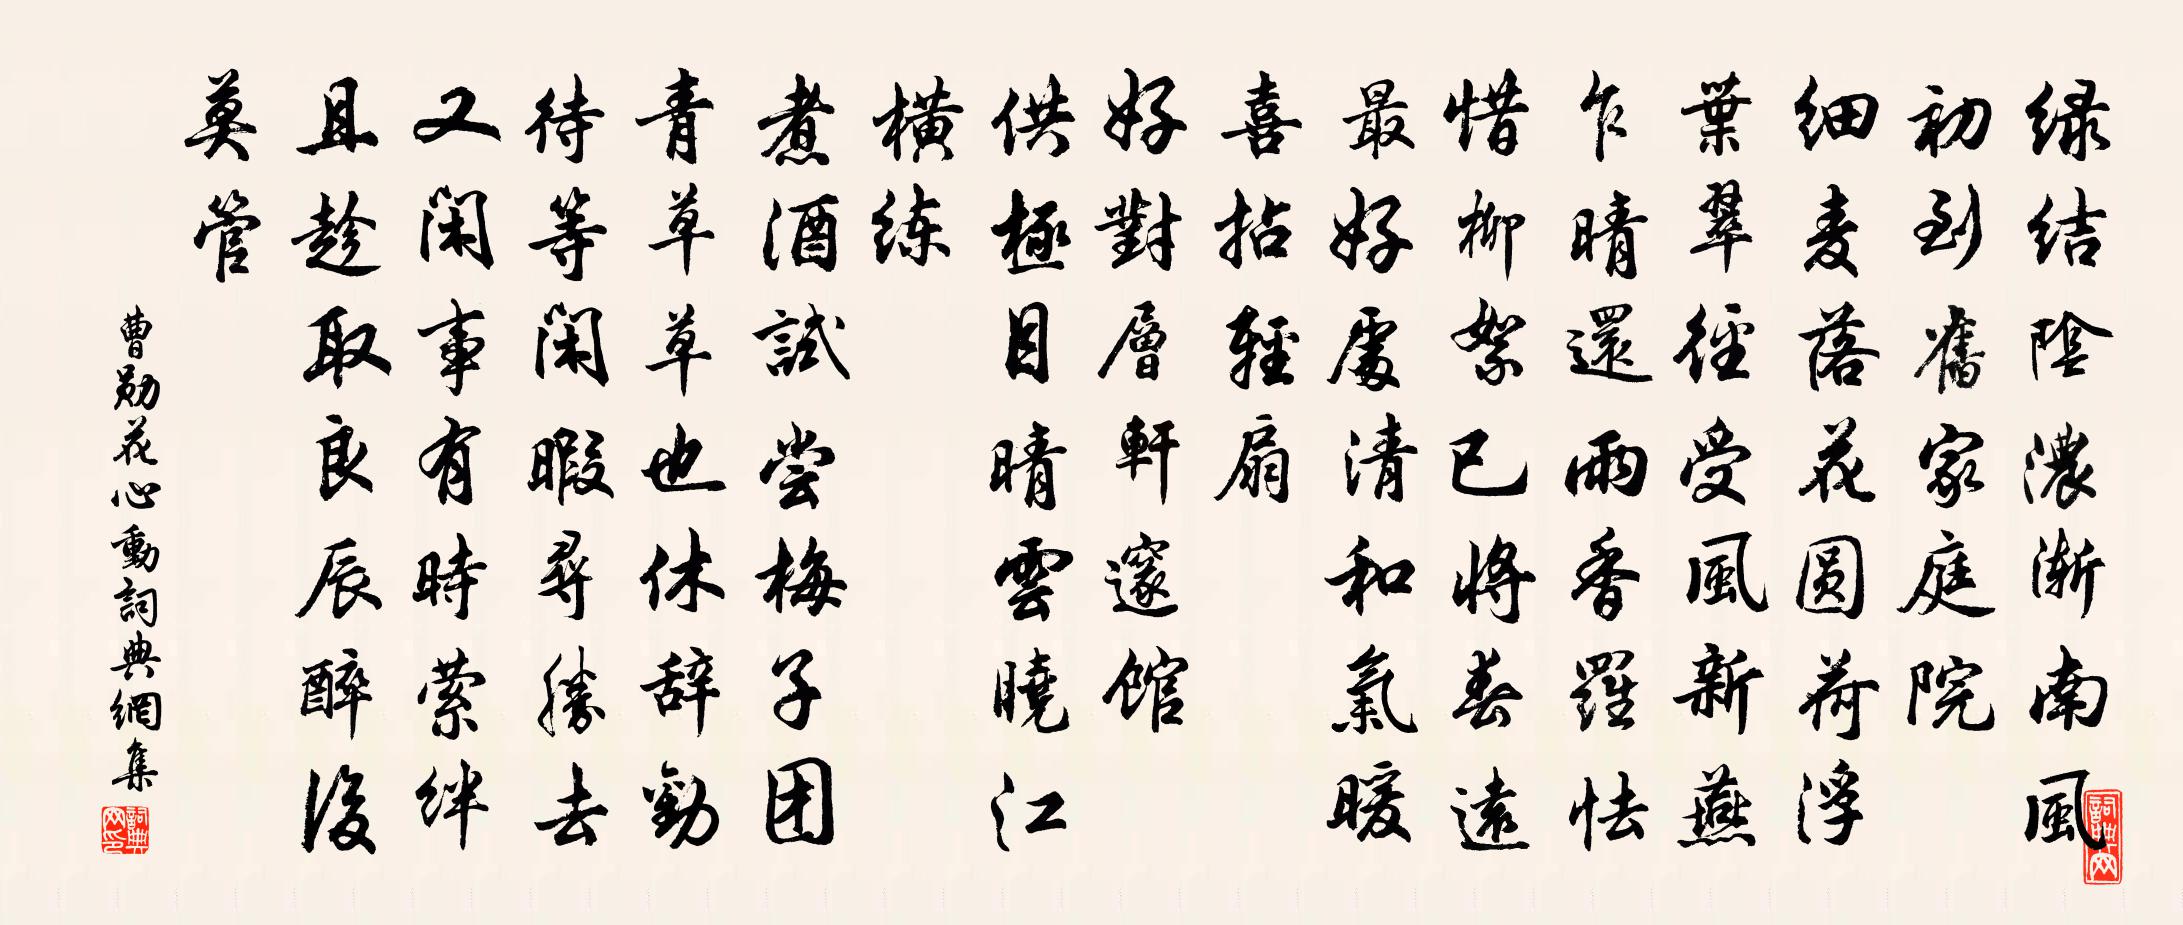 绿结陰濃渐南風
初到舊家庭院
细麦落花圆荷浮
葉翠徑受風新燕
乍晴還雨香羅怯
惜柳絮已將春遠
最好處清和氣暖
喜拈輕扇
好對層軒邃館
供極目晴雲曉江
横练
煮酒試尝梅子团
青草草也休辞勸
待等閑暇尋勝去
又閑事有時萦绊
且趁取良辰醉後
莫管
曹勛花心動詞典網集
詞典网